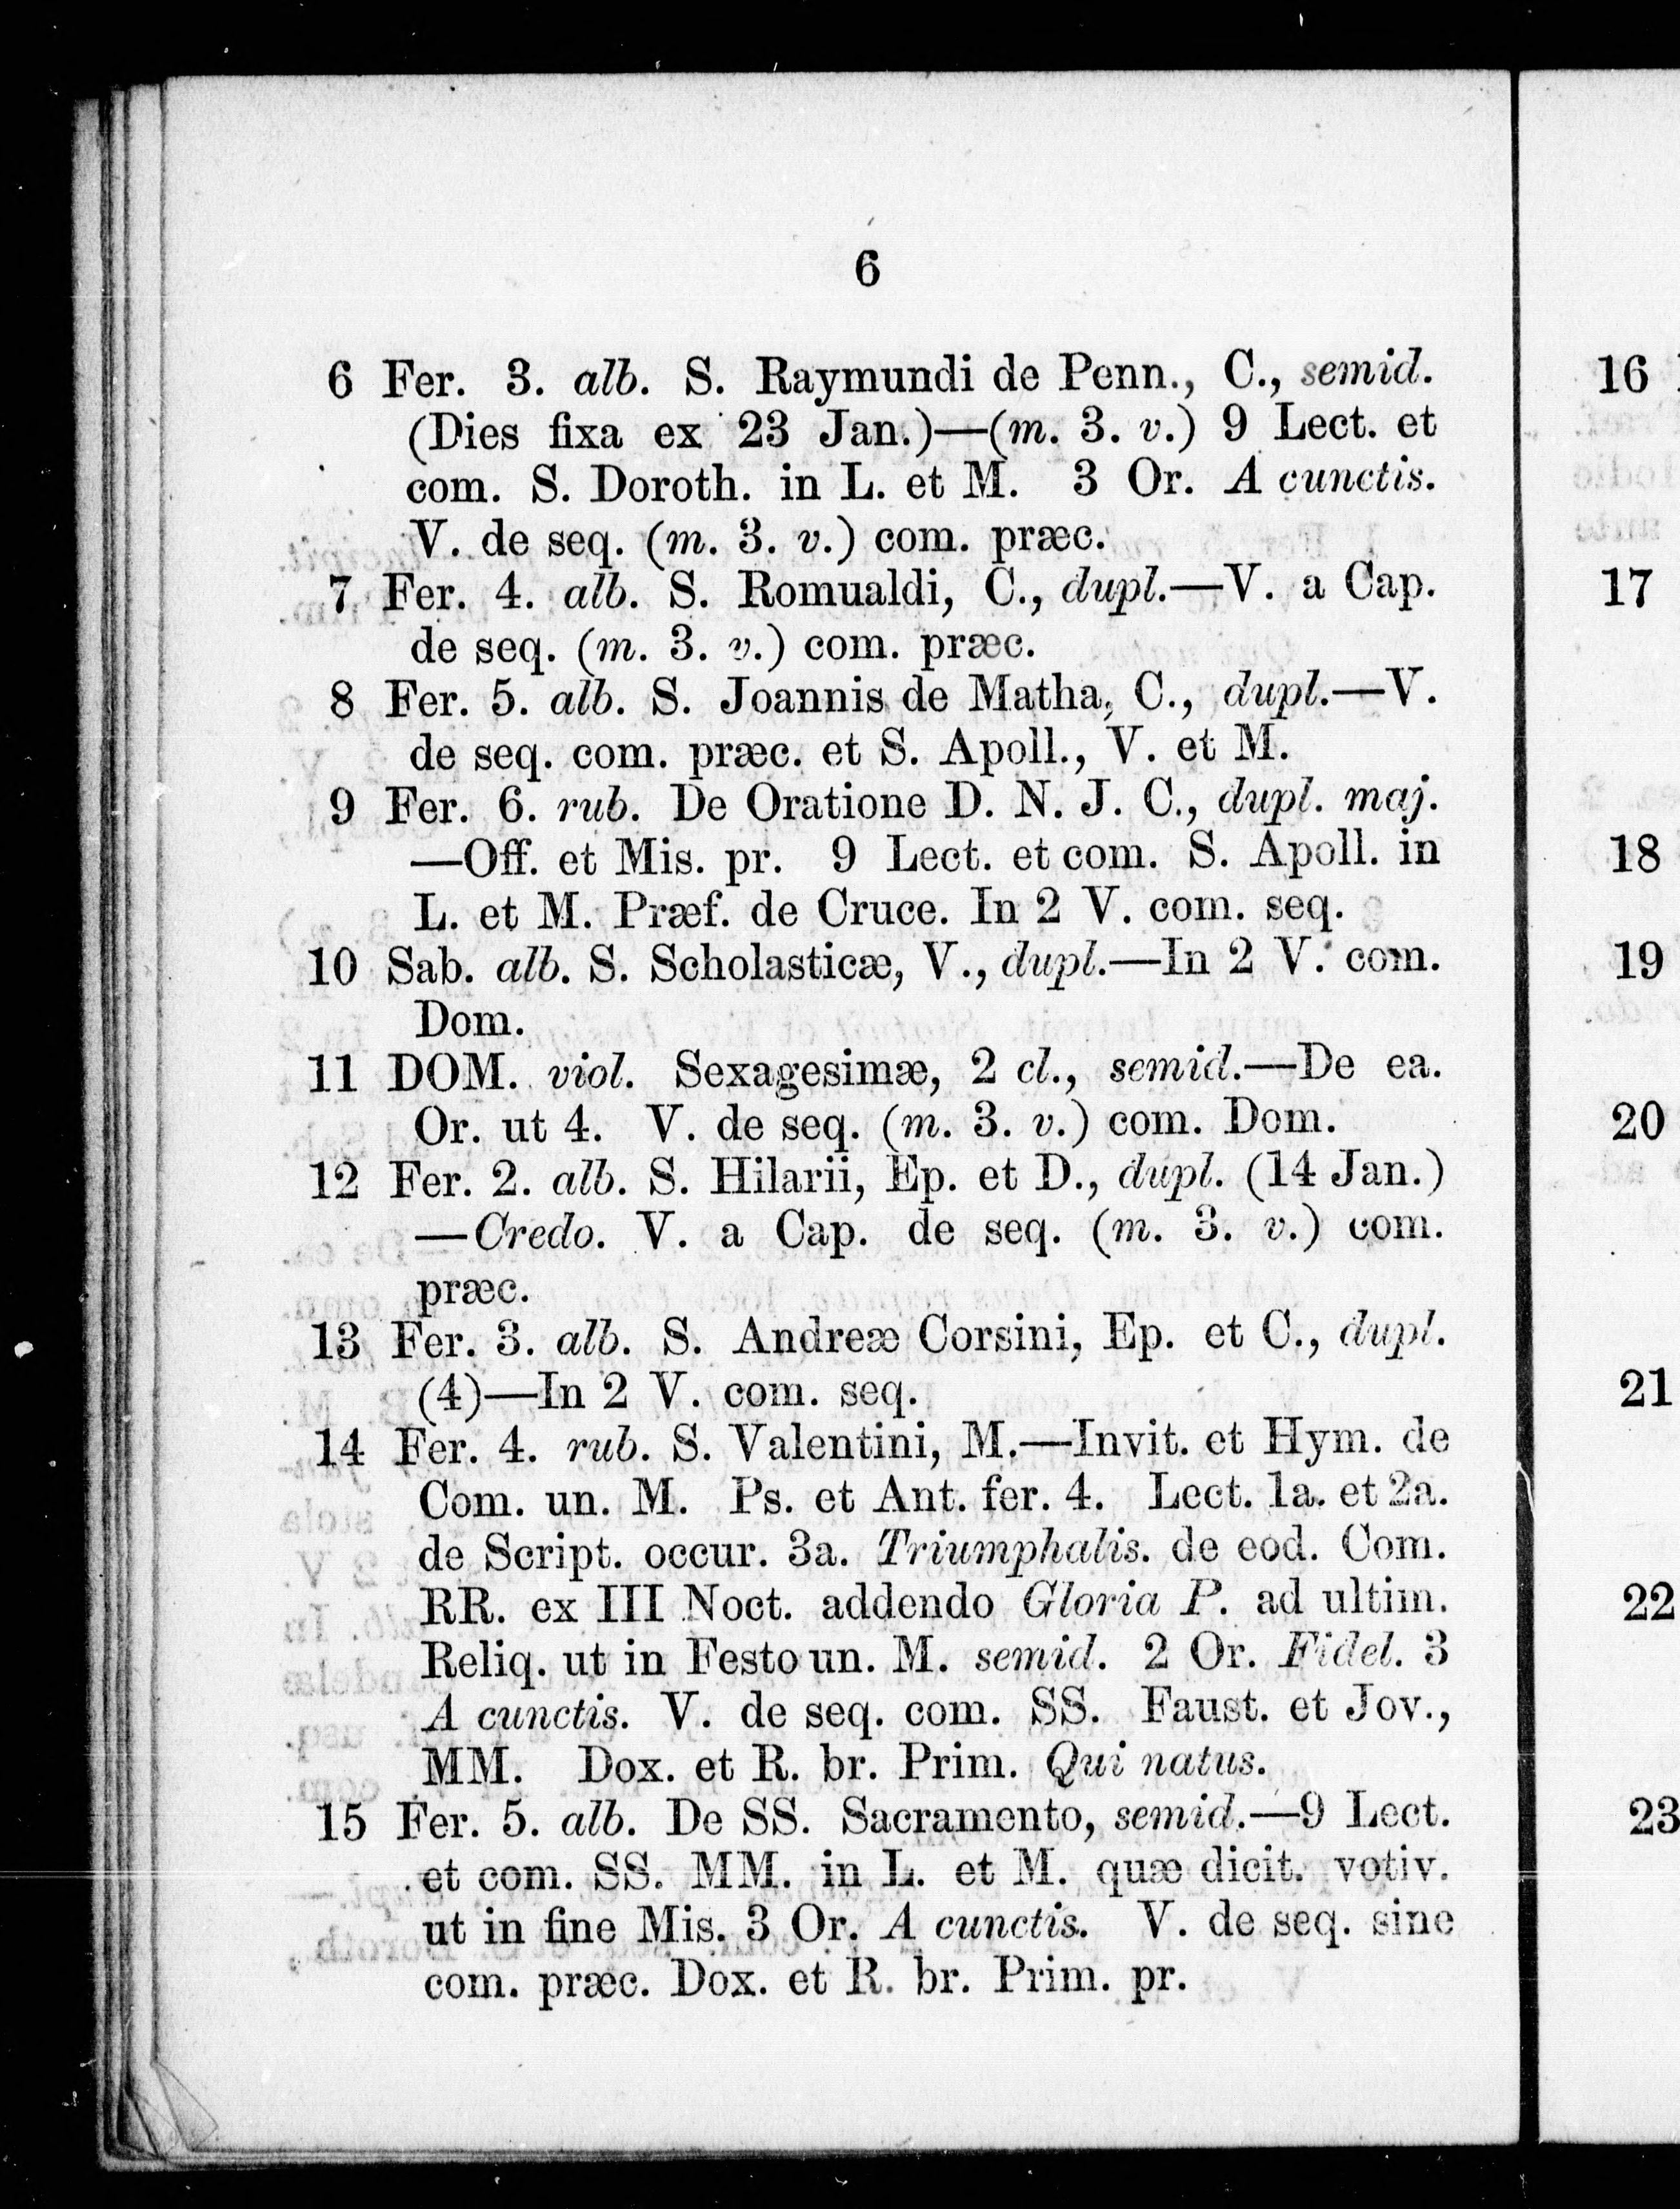 6
6 Fer. 3. alb. S. Raymundi de Penn., C., semid.
(Dies fixa ex 23 Jan.)—(m. 3. v.) 9 Lect. et
com. S. Doroth. in L. et M. 3 Or. A cunctis.
V. de seq. (m. 3. v.) com. præc.
7 Fer. 4. alb. S. Romualdi, C., dupl.—V. a Cap.
de seq. (m. 3. v.) com. præc.
8 Fer. 5. alb. S. Joannis de Matha, C., dupl.—V.
de seq. com. præc. et S. Apoll., V. et M.
9 Fer. 6. rub. De Oratione D. N. J. C., dupl. maj.
—Off. et Mis. pr. 9 Lect. et com. S. Apoll. in
L. et M. Præf. de Cruce. In 2 V. com. seq.
10 Sab. alb. S. Scholasticæ, V., dupl.—In 2 V. com.
Dom.
11 DOM. viol. Sexagesimæ, 2 cl., semid.—De ea.
Or. ut 4. V. de seq. (m. 3. v.) com. Dom.
12 Fer. 2. alb. S. Hilarii, Ep. et D., dupl. (14 Jan.)
—Credo. V. a Cap. de seq. (m. 3. v.) com.
præc.
13 Fer. 3. alb. S. Andreæ Corsini, Ep. et C., dupl.
(4)—In 2 V. com. seq.
14 Fer. 4. rub. S. Valentini, M.—Invit. et Hym. de
Com. un. M. Ps. et Ant. fer. 4. Lect. 1a. et 2a.
de Script. occur. 3a. Triumphalis. de eod. Com.
RR. ex III Noct. addendo Gloria P. ad ultim.
Reliq. ut in Festo un. M. semid. 2 Or. Fidel. 3
A cunctis. V. de seq. com. SS. Faust. et Jov.,
MM. Dox. et R. br. Prim. Qui natus.
15 Fer. 5. alb. De SS. Sacramento, semid.—9 Lect.
et com. SS. MM. in L. et M. quæ dicit. votiv.
ut in fine Mis. 3 Or. A cunctis. V. de seq. sine
com. præc. Dox. et R. br. Prim. pr.
16
17
18
19
20
21
22
23